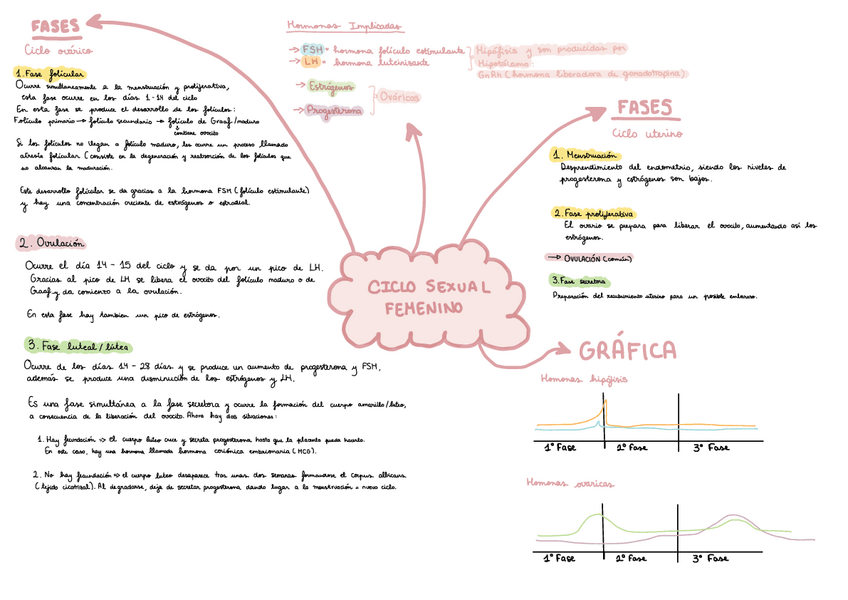 FASES
Ciclo ovárico
1. Fase folicular
Ocurre simultaneamente a la menstruación y proliferativa,
esta fase ocurre en los días 1-14 del ciclo
En esta fase se produce el desarrollo de los folículos:
Folículo primario → folículo secundario → folículo de Graaf/maduro
contiene ovocito
Si los folículos no llegan a folículo maduro, les ocurre un proceso llamado
atresia folicular (consiste en la degeneración y reabsorción de los folículos que
no alcanzan la maduración.
Este desarrollo folicular se da gracias a la hormona FSH (folículo estimulante)
y hay una concentración creciente de estrógenos o estradiol.
2. Ovulación
Ocurre el día 14 - 15 del ciclo y se da por un pico de LH.
Gracias al pico de LH se libera el ovocito del folículo maduro o de
Graaf y da comienzo a la ovulación.
En esta fase hay tambien un pico de estrógenos.
3. Fase luteal/lútea
Ocurre de los días 14 - 28 días y se produce un aumento de progesterona y FSH,
además se produce una disminución de los estrógenos y LH.
Es una fase simultánea a la fase secretora y ocurre la formación del cuerpo amarillo/lúteo,
a consecuencia de la liberación del ovocito. Ahora hay dos situaciones:
1. Hay fecundación => el cuerpo lúteo crece y secreta progesterona hasta que la placenta pueda hacerlo.
En este caso, hay una hormona llamada hormona coriónica embrionaria (HCG).
2. No hay fecundación => el cuerpo lúteo desaparece tras unas dos semanas formandose el corpus albicans
(tejido cicatrizal). Al degradarse, deja de secretar progesterona dando lugar a la menstruación = nuevo ciclo.
Hormonas Implicadas
→ FSH = hormona folículo estimulante
→ LH = hormona luteinizante
Hipófisis y son producidas por
Hipotálamo:
GnRh (hormona liberadora de gonadotropina)
→ Estrógenos
→ Progesterona
Ováricas
CICLO SEXUAL
FEMENINO
FASES
Ciclo uterino
1. Menstruación
Desprendimiento del endometrio, siendo los niveles de
progesterona y estrógenos son bajos.
2. Fase proliferativa
El ovario se prepara para liberar el ovocito, aumentando así los
estrógenos.
→ OVULACIÓN (común)
3. Fase secretora
Preparación del recubrimiento uterino para un posible embarazo.
GRÁFICA
Hormonas hipófisis
1º Fase 2º Fase 3º Fase
Hormonas ovaricas
1º Fase 2º Fase 3º Fase